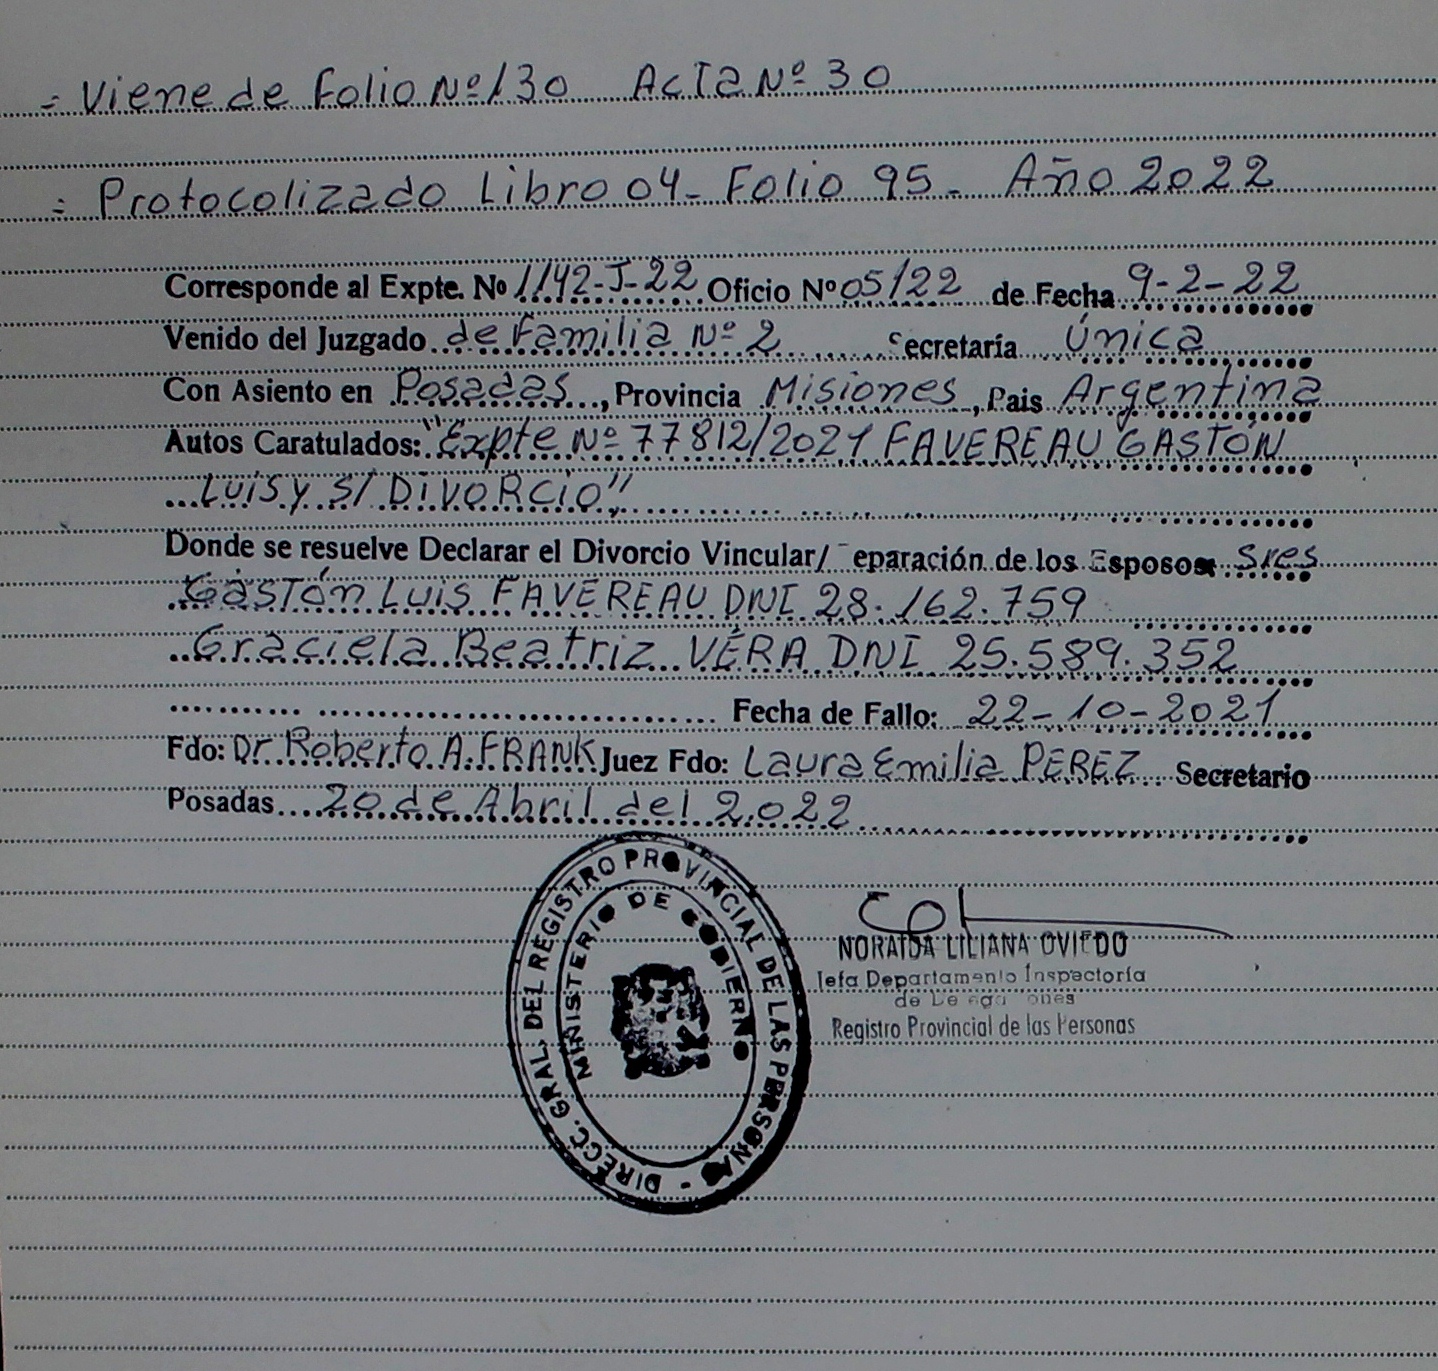 = Viene de Folio Nº 130 Acta Nº 30
= Protocolizado Libro 04- Folio 95- Año 2022
Corresponde al Expte. Nº 1142-J-22 Oficio Nº 05/22 de Fecha 9-2-22
Venido del Juzgado de Familia Nº 2 Secretaría Única
Con Asiento en Posadas, Provincia Misiones, Pais Argentina
Autos Caratulados: "Expte Nº 77812/2021 FAVEREAU GASTÓN
LUIS y S/ DIVORCIO"
Donde se resuelve Declarar el Divorcio Vincular/ eparación de los Esposos Sres
Gastón Luis FAVEREAU DNI 28.162.759
Graciela Beatriz VÉRA DNI 25.589.352
Fecha de Fallo: 22-10-2021
Fdo: Dr. Roberto A. FRANK Juez Fdo: Laura Emilia PEREZ Secretario
Posadas 20 de Abril del 2022
DIRECC. GRAL. DEL REGISTRO PROVINCIAL DE LAS PERSONAS -
MINISTERIO DE GOBIERNO
NORAIDA LILIANA OVIEDO
Jefa Departamento Inspectoría
de
Registro Provincial de las Personas